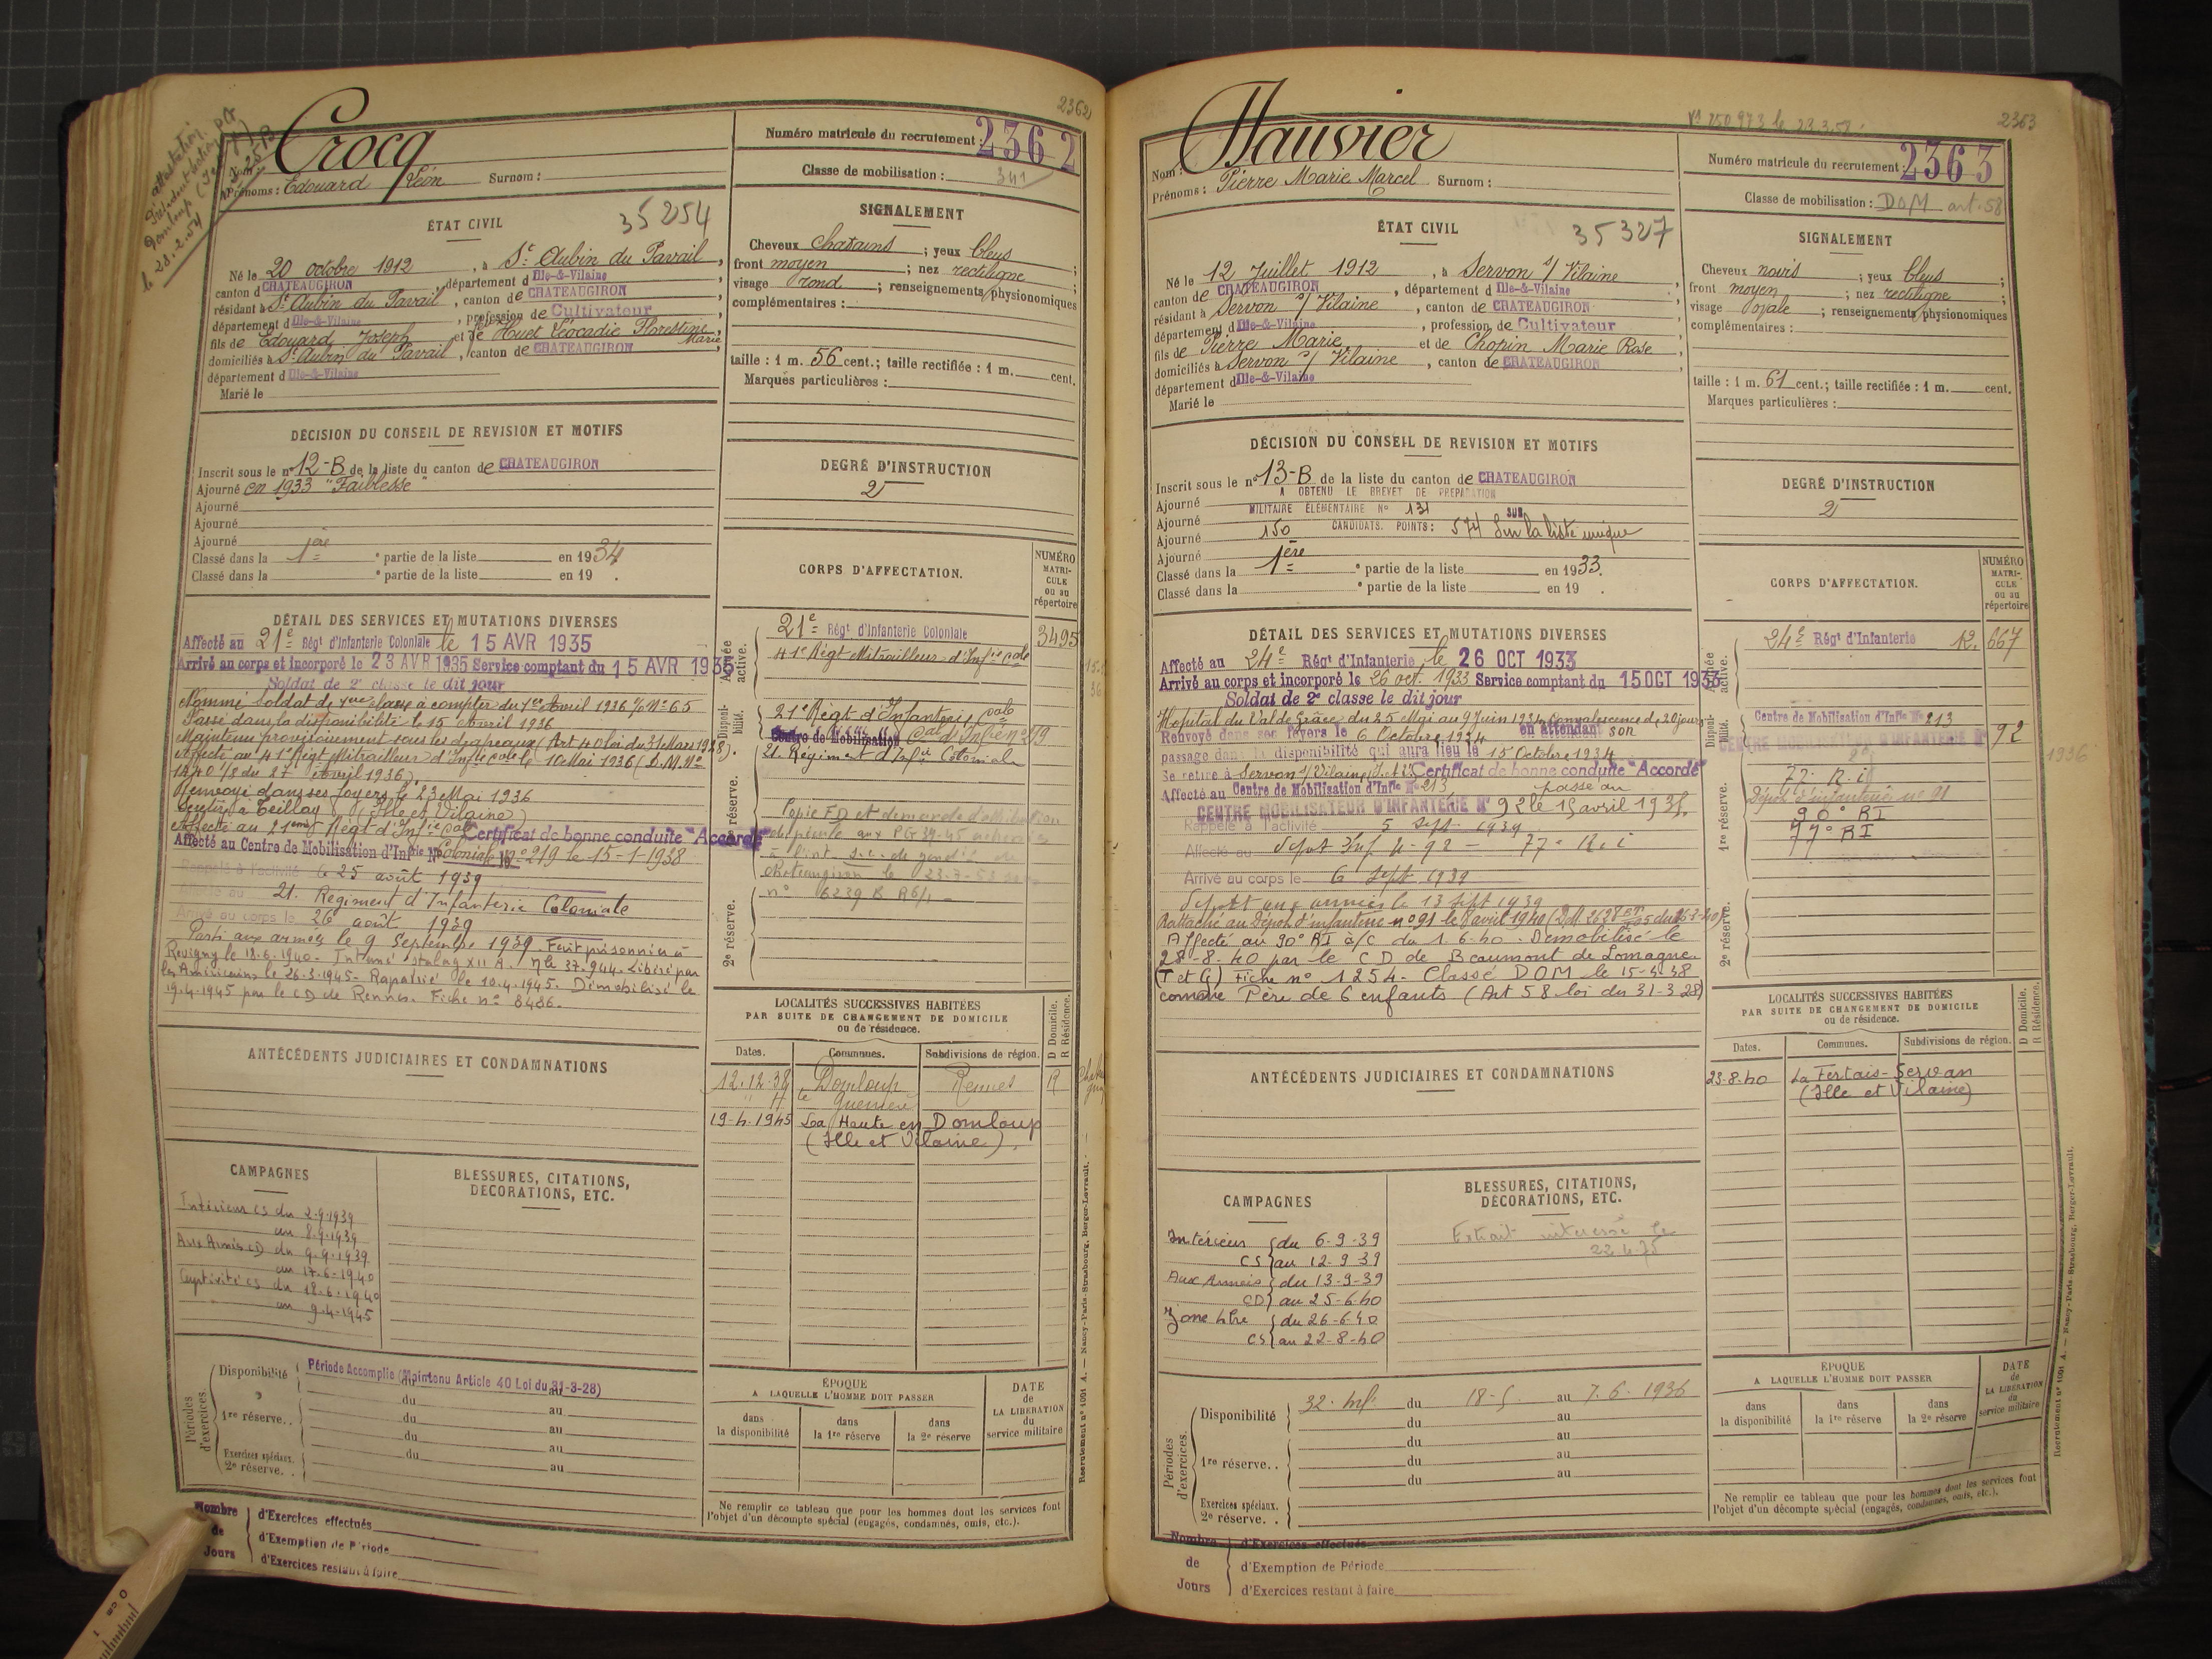 2362
attestation
Président
Domloup
le 28.2.54
Crocq
Nom :
Prénoms : Edouard Léon Surnom :
Numéro matricule du recrutement : 2362
Classe de mobilisation :
ÉTAT CIVIL
35254
Né le 20 octobre 1912, à St Aubin du Pavail,
canton d CHATEAUGIRON, département d Ille-&-Vilaine
résidant à St Aubin du Pavail, canton de CHATEAUGIRON
département d Ille-&-Vilaine, profession de Cultivateur
fils de Edouard Joseph et de Huet Léocadie Florestine Marie,
domiciliés à St Aubin du Pavail, canton de CHATEAUGIRON
département d Ille-&-Vilaine
Marié le
SIGNALEMENT
Cheveux chatains ; yeux bleus ;
front moyen ; nez rectiligne ;
visage rond ; renseignements physionomiques
complémentaires :
taille : 1 m. 56 cent.; taille rectifiée : 1 m. cent.
Marques particulières :
DÉCISION DU CONSEIL DE REVISION ET MOTIFS
Inscrit sous le n° 12-B de la liste du canton de CHATEAUGIRON
Ajourné en 1933 "Faiblesse"
Ajourné
Ajourné
Ajourné
Classé dans la 1ère e partie de la liste en 1934
Classé dans la e partie de la liste en 19 .
DEGRÉ D'INSTRUCTION
2
CORPS D'AFFECTATION.
NUMÉRO MATRICULE ou au répertoire
DÉTAIL DES SERVICES ET MUTATIONS DIVERSES
Affecté au 21e Régt d'Infanterie Coloniale le 15 AVR 1935
Arrivé au corps et incorporé le 23 AVR 1935 Service comptant du 15 AVR 1935
Soldat de 2e classe le dit jour
Nommé Soldat de 1ère classe à compter du 1er Avril 1936 % N° 65
Passé dans la disponibilité le 15 Avril 1936
Maintenu provisoirement sous les drapeaux (Art 40 loi du 31 Mars 1928).
Affecté au 41e Régt Mitrailleurs d'Infie Cole le 10 Mai 1936 (D.M. N°
1440 1/8 du 27 Avril 1936).
Renvoyé dans ses foyers le 23 Mai 1936
Se retire à Teillay (Ille et Vilaine)
Affecté au 21ème Régt d'Infie Cole Certificat de bonne conduite "Accordé"
Affecté au Centre de Mobilisation d'Infie N° Coloniale n° 219 le 15-1-1938
Rappelé à l'activité le 25 août 1939
Affecté au 21. Régiment d'Infanterie Coloniale
Arrivé au corps le 26 août 1939
Parti aux armées le 9 Septembre 1939. Fait prisonnier à
Revigny le 18-6-1940. Interné stalag XII A. Mle 37.944. Libéré par
les Américains le 26-3-1945. Rapatrié le 10-4-1945. Démobilisé le
19-4-1945 par le CD de Rennes. Fiche n° 8486.
Armée active.
21e Régt d'Infanterie Coloniale 3495
41e Régt Mitrailleurs d'Infie Cole
Disponibilité.
21e Régt d'Infanterie Cole
Centre de Mobilisation Cal d'Infie n° 219
21. Régiment d'Infie Coloniale
1re réserve.
Copie FD et demande d'attribution
du pécule aux PG 39-45
Chateaugiron le 23-7-53
n° 6239 B
2e réserve.
ANTÉCÉDENTS JUDICIAIRES ET CONDAMNATIONS
LOCALITÉS SUCCESSIVES HABITÉES
PAR SUITE DE CHANGEMENT DE DOMICILE
ou de résidence.
D Domicile. R Résidence.
Dates. Communes. Subdivisions de région.
12.12.38 Domloup Rennes R
19-4-1945 La Haute en Domloup
(Ille et Vilaine).
CAMPAGNES
Intérieur CS du 2-9-1939
au 8-9-1939
Aux Armées CD du 9-9-1939
au 17-6-1940
Captivité CS du 18-6-1940
au 9-4-1945
BLESSURES, CITATIONS,
DÉCORATIONS, ETC.
Périodes d'exercices.
Disponibilité Période Accomplie (Maintenu Article 40 Loi du 31-3-28)
du au
1re réserve.. du au
du au
Exercices spéciaux. 2e réserve. . du au
ÉPOQUE
A LAQUELLE L'HOMME DOIT PASSER
dans la disponibilité
dans la 1re réserve
dans la 2e réserve
DATE de LA LIBÉRATION du service militaire
Ne remplir ce tableau que pour les hommes dont les services font
l'objet d'un décompte spécial (engagés, condamnés, omis, etc.).
Nombre de Jours
d'Exercices effectués
d'Exemption de Période
d'Exercices restant à faire
Recrutement n° 1091 A. — Nancy-Paris-Strasbourg, Berger-Levrault.
2363
N° 250.973 le 23.3.58
Hauvier
Nom :
Prénoms : Pierre Marie Marcel Surnom :
Numéro matricule du recrutement : 2363
Classe de mobilisation : DOM art. 58
ÉTAT CIVIL
35327
Né le 12 Juillet 1912, à Servon s/ Vilaine
canton de CHATEAUGIRON, département d Ille-&-Vilaine
résidant à Servon s/ Vilaine, canton de CHATEAUGIRON
département d Ille-&-Vilaine, profession de Cultivateur
fils de Pierre Marie et de Chopin Marie Rose
domiciliés à Servon s/ Vilaine, canton de CHATEAUGIRON
département d Ille-&-Vilaine
Marié le
SIGNALEMENT
Cheveux noirs ; yeux bleus ;
front moyen ; nez rectiligne ;
visage ovale ; renseignements physionomiques
complémentaires :
taille : 1 m. 61 cent.; taille rectifiée : 1 m. cent.
Marques particulières :
DÉCISION DU CONSEIL DE REVISION ET MOTIFS
Inscrit sous le n° 13-B de la liste du canton de CHATEAUGIRON
A OBTENU LE BREVET DE PREPARATION
Ajourné MILITAIRE ÉLÉMENTAIRE N° 131 SUR
Ajourné 150 CANDIDATS. POINTS : 574 Sur la liste unique
Ajourné
Ajourné
Classé dans la 1ère e partie de la liste en 1933.
Classé dans la e partie de la liste en 19 .
DEGRÉ D'INSTRUCTION
2
CORPS D'AFFECTATION.
NUMÉRO MATRICULE ou au répertoire
DÉTAIL DES SERVICES ET MUTATIONS DIVERSES
Affecté au 24e Régt d'Infanterie le 26 OCT 1933
Arrivé au corps et incorporé le 26 oct. 1933 Service comptant du 15 OCT 1933
Soldat de 2e classe le dit jour
Hopital du Val de Grâce du 25 Mai au 9 Juin 1934 Convalescence de 20 jours
Renvoyé dans ses foyers le 6 Octobre 1934 en attendant son
passage dans la disponibilité qui aura lieu le 15 Octobre 1934
Se retire à Servon s/ Vilaine I. et V. Certificat de bonne conduite "Accordé"
Affecté au Centre de Mobilisation d'Infie N° 213 passe au
CENTRE MOBILISATEUR D'INFANTERIE N° 92 le 15 avril 1935.
Rappelé à l'activité 5 Sept 1939
Affecté au dépot Inf n° 92 — 77e R.I
Arrivé au corps le 6 Sept 1939
Départ aux armées le 13 Sept 1939
Rattaché au Dépôt d'infanterie n° 91 le 8 avril 1940
Affecté au 90e RI à/c du 1.6.40. Démobilisé le
28-8-40 par le CD de Beaumont de Lomagne
(T et G) Fiche n° 1254. Classé DOM le 15-4-38
comme Père de 6 enfants (Art 58 loi du 31-3-28)
Armée active.
24e Régt d'Infanterie 12. 667
Disponibilité.
Centre de Mobilisation d'Infie N° 213
CENTRE MOBILISATEUR D'INFANTERIE N° 92
1936
1re réserve.
77. R.I
Dépot d'infanterie n° 91
90e RI
77e RI
2e réserve.
ANTÉCÉDENTS JUDICIAIRES ET CONDAMNATIONS
LOCALITÉS SUCCESSIVES HABITÉES
PAR SUITE DE CHANGEMENT DE DOMICILE
ou de résidence.
D Domicile. R Résidence.
Dates. Communes. Subdivisions de région.
23-8-40 La Fertais-Servan
(Ille et Vilaine)
CAMPAGNES
Intérieur du 6-9-39
CS au 12-9-39
Aux Armées du 13-9-39
CD au 25-6-40
Zone libre du 26-6-40
CS au 22-8-40
BLESSURES, CITATIONS,
DÉCORATIONS, ETC.
Extrait intéressé le
22.4.75
Périodes d'exercices.
Disponibilité 32. Inf. du 18-5 au 7.6.1936
du au
1re réserve.. du au
du au
du au
Exercices spéciaux. 2e réserve. .
ÉPOQUE
A LAQUELLE L'HOMME DOIT PASSER
dans la disponibilité
dans la 1re réserve
dans la 2e réserve
DATE de LA LIBÉRATION du service militaire
Ne remplir ce tableau que pour les hommes dont les services font
l'objet d'un décompte spécial (engagés, condamnés, omis, etc.).
Nombre de Jours
d'Exercices effectués
d'Exemption de Période
d'Exercices restant à faire
Recrutement n° 1091 A. — Nancy-Paris-Strasbourg, Berger-Levrault.
0 cm 1